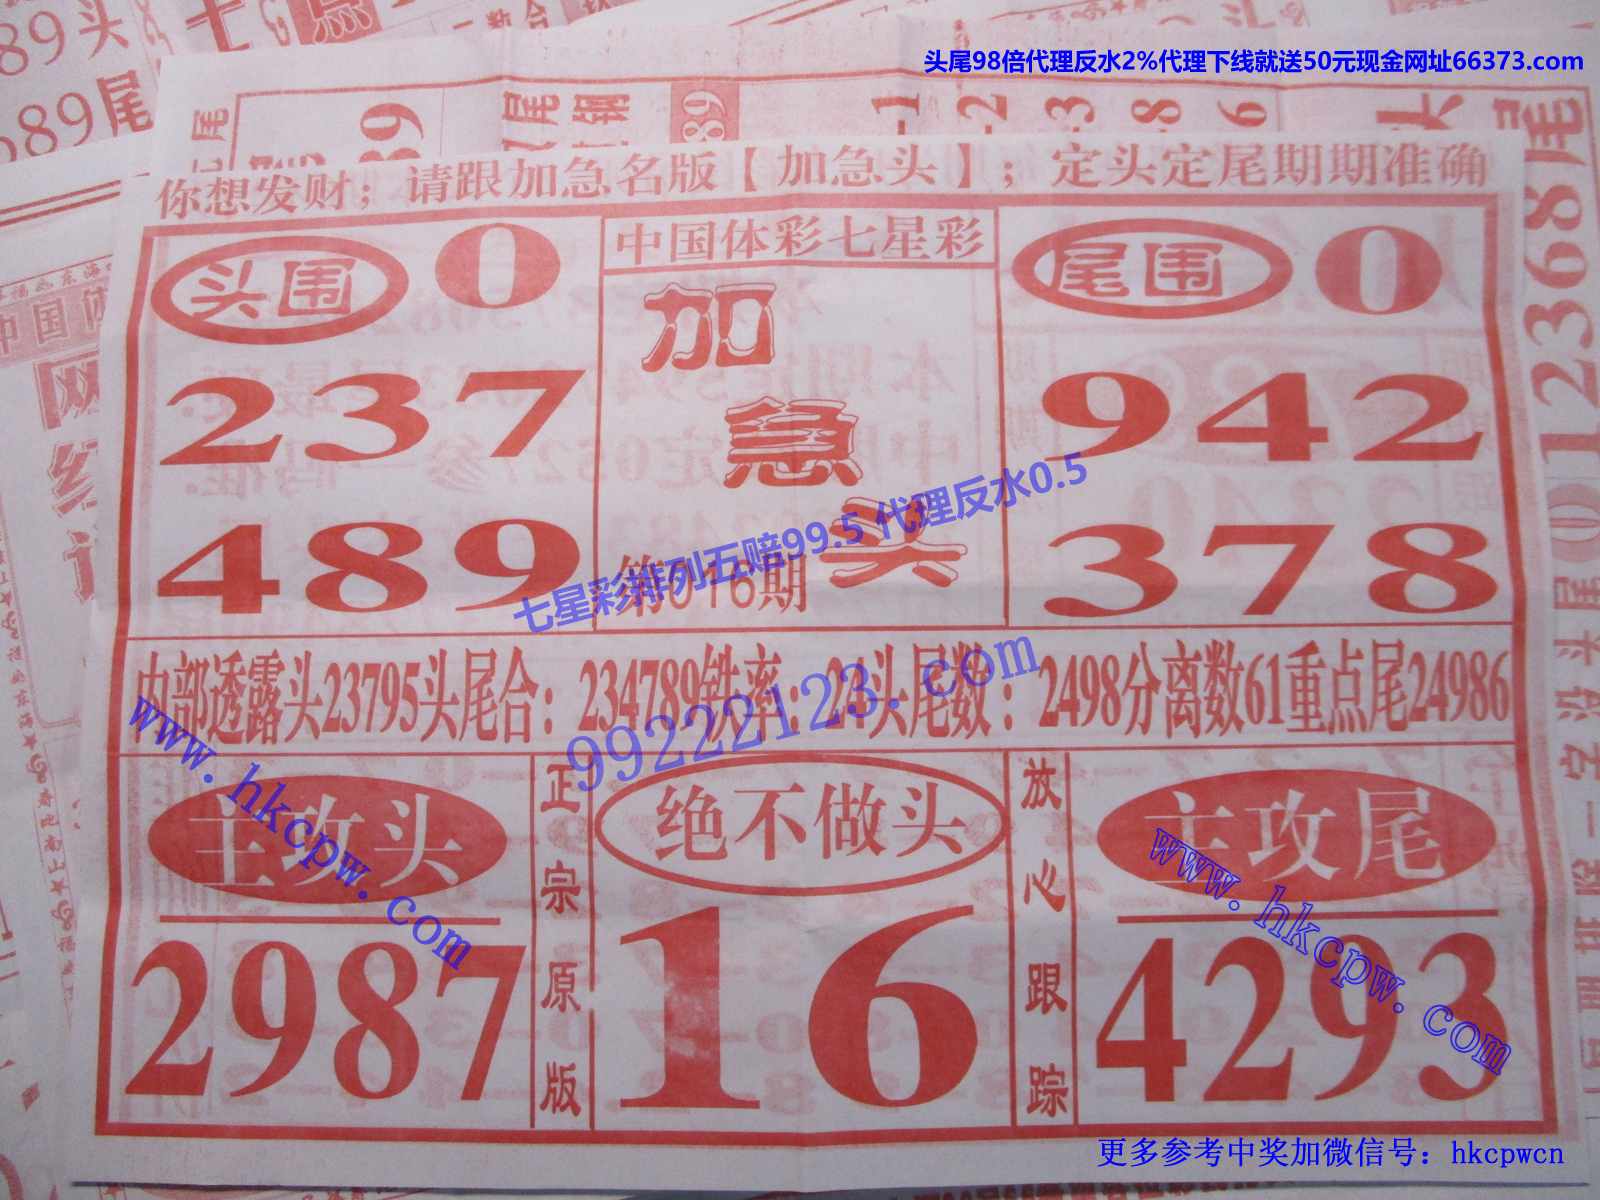 头尾98倍代理反水2%代理下线就送50元现金网址66373.com
你想发财；请跟加急名版【加急头】；定头定尾期期准确
头围 0
237
489
中国体彩七星彩
加
急
头
第016期
尾围 0
942
378
七星彩排列五赔99.5 代理反水0.5
内部透露头23795头尾合：234789铁率：24头尾数：2498分离数61重点尾24986
99222123.com
主攻头
2987
www.hkcpw.com
正宗原版
绝不做头
16
放心跟踪
主攻尾
4293
www.hkcpw.com
689尾
尾012368
更多参考中奖加微信号：hkcpwcn